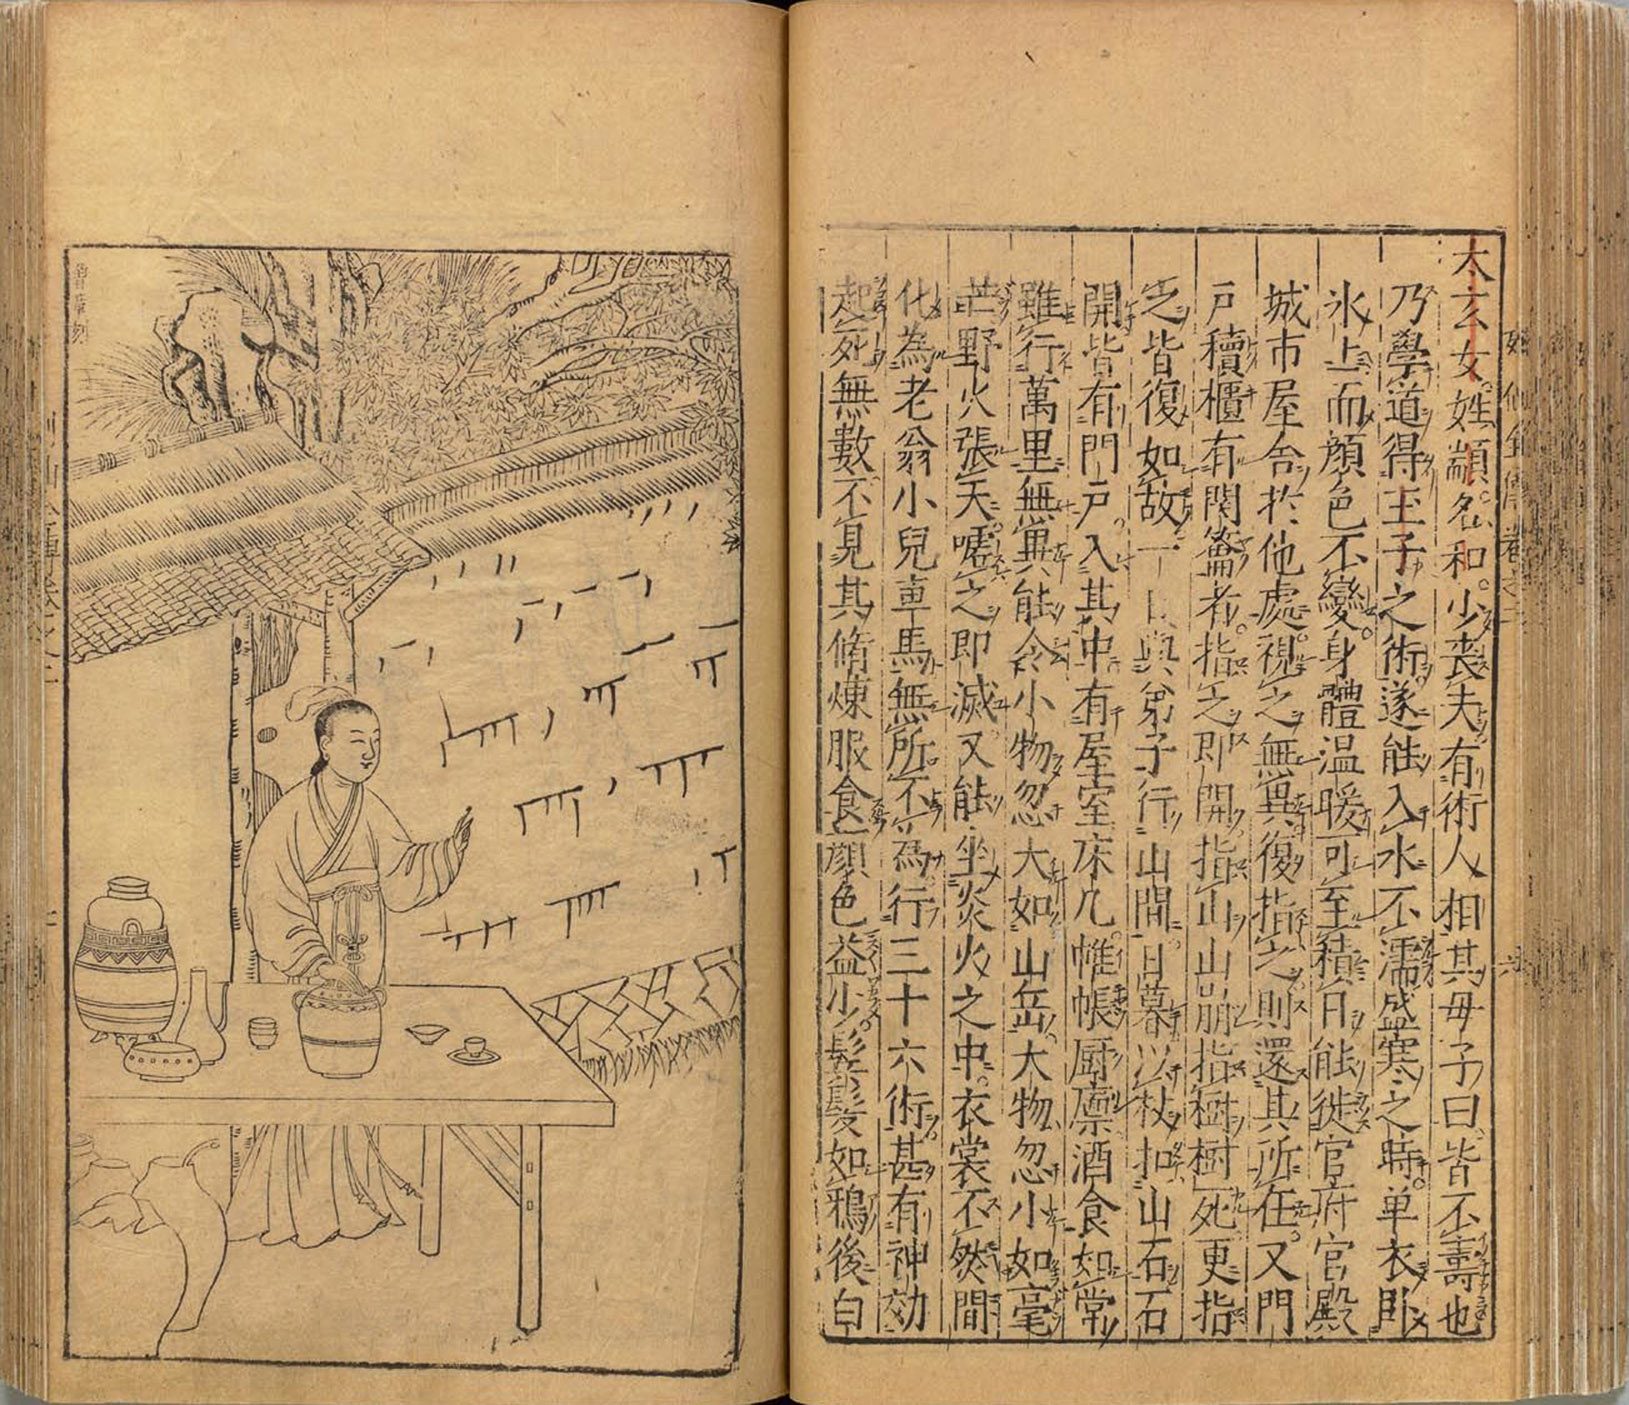 太玄女姓顓名和少喪夫有術人相其毋子曰皆不壽也
乃學道得王子之術遂能入水不濡盛寒之時单衣卧
氷上而顔色不變身體温暖可至積日能徙官府宮殿
城市屋舎扵他處視之無異復指之則還其所在又門
戸櫝櫃有関籥者指之即開指山山崩指樹樹死更指
之皆復如故一日與弟子行山間日暮以杖扣山石石
開皆有門戸入其中有屋室床几帷帳厨廪酒食如常
雖行萬里無異能令小物忽大如山岳大物忽小如毫
芒野火張天噓之即滅又能坐炎火之中衣裳不然間
化為老翁小兒車馬無所不為行三十六術甚有神効
起死無數不見其脩煉服食顔色益少髮鬓如鴉後白